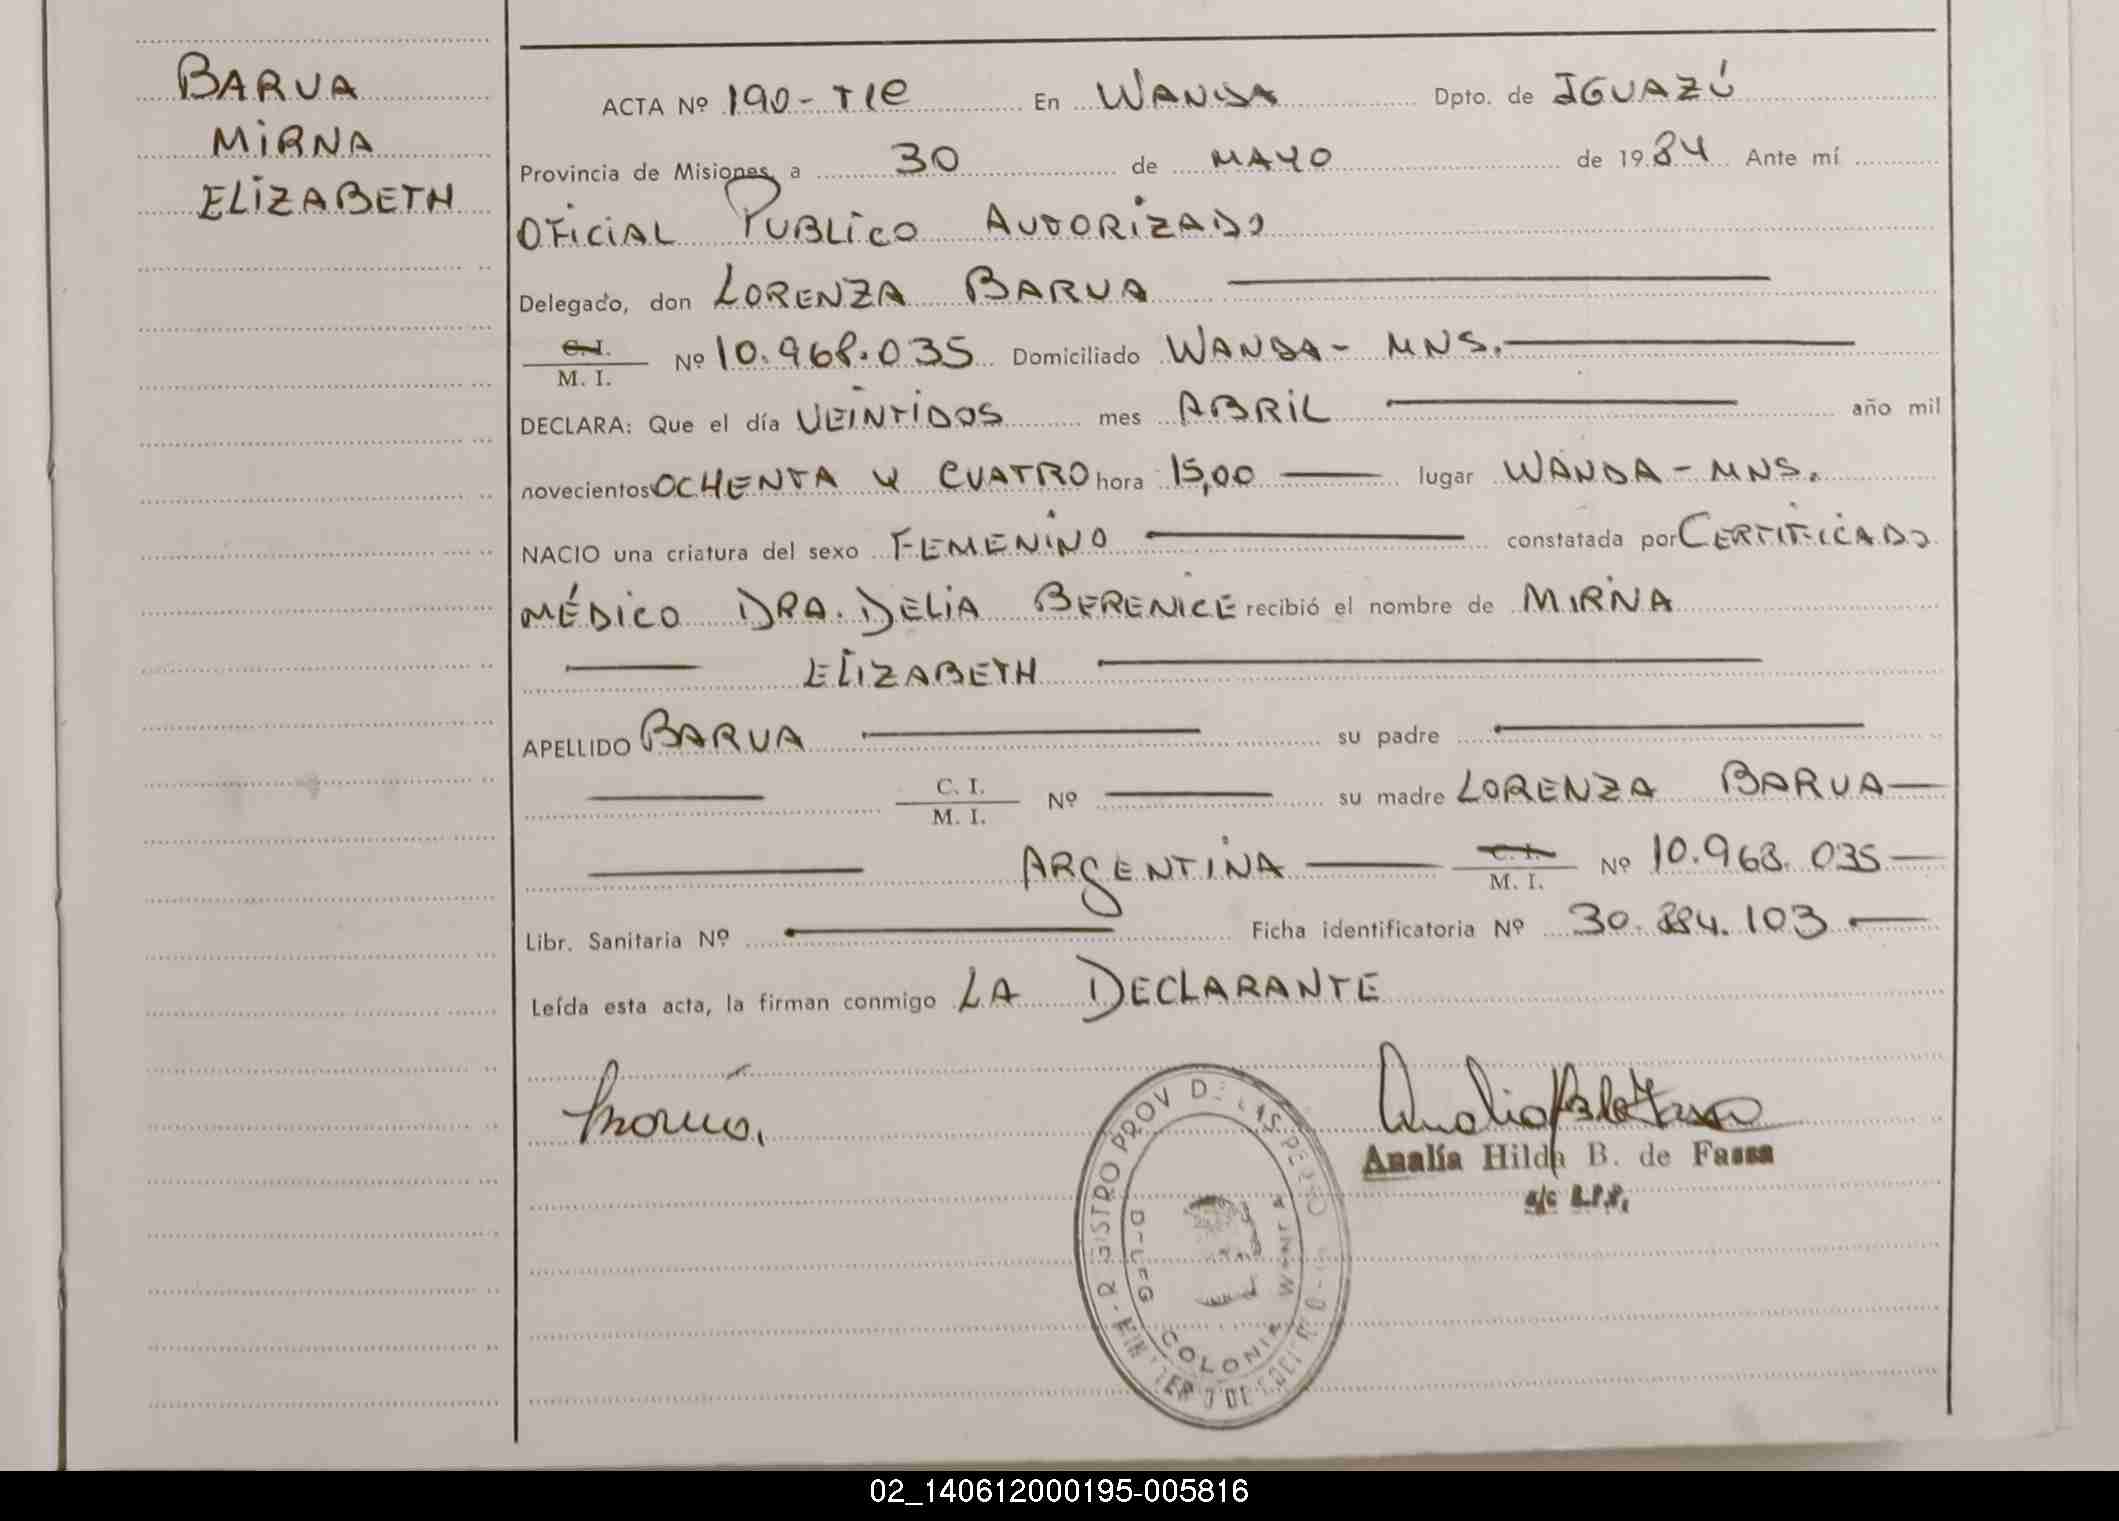 BARUA
MIRNA
ELIZABETH
ACTA Nº 190-TIE En WANDA Dpto. de IGUAZÚ
Provincia de Misiones, a 30 de MAYO de 1984 Ante mí
OFICIAL PUBLICO AUTORIZADO
Delegado, don LORENZA BARUA
C. I.
M. I. Nº 10.968.035 Domiciliado WANDA- MNS.
DECLARA: Que el día VEINTIDOS mes ABRIL año mil
novecientos OCHENTA Y CUATRO hora 15,00 lugar WANDA-MNS.
NACIO una criatura del sexo FEMENINO constatada por CERTIFICADO
MÉDICO DRA. DELIA BERENICE recibió el nombre de MIRNA
ELIZABETH
APELLIDO BARUA su padre
C. I.
M. I. Nº su madre LORENZA BARUA
ARGENTINA C. I.
M. I. Nº 10.968.035
Libr. Sanitaria Nº Ficha identificatoria Nº 30.884.103
Leída esta acta, la firman conmigo LA DECLARANTE
Analía Hilda B. de Fassa
REGISTRO PROV DE LAS PERS
DELEG COLONIA WANDA
02_140612000195-005816